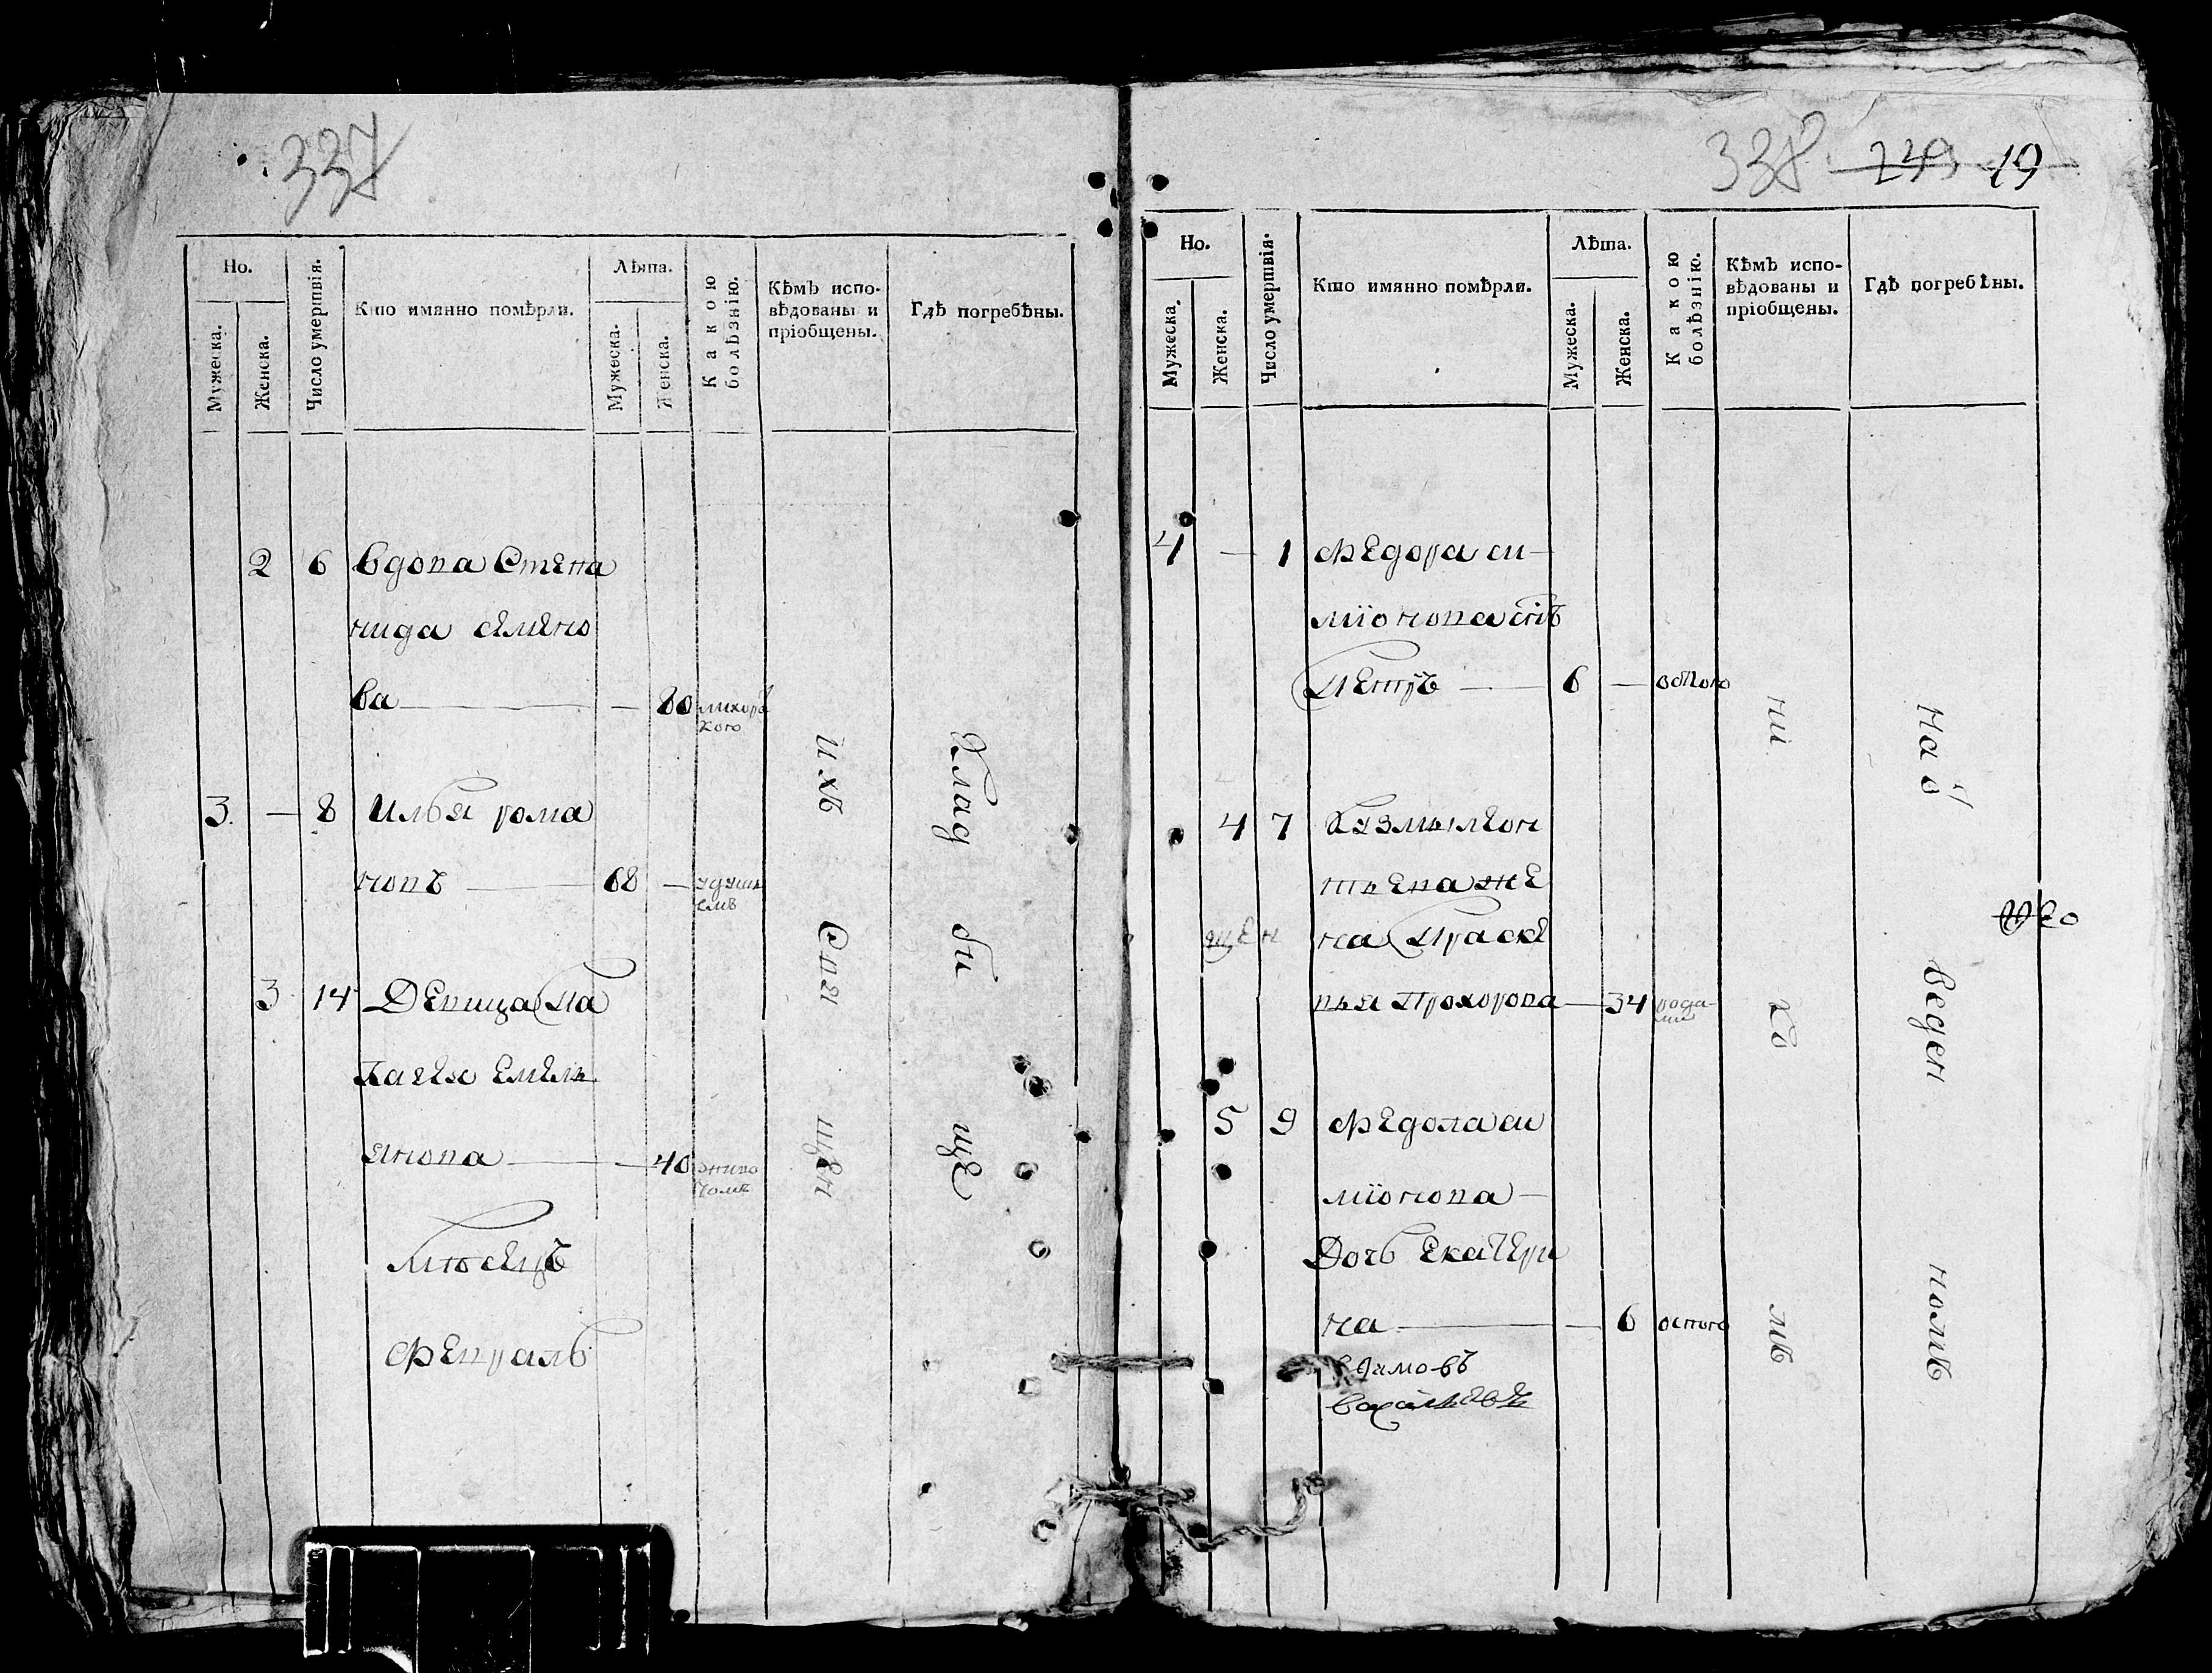 337
Но.
Мужеска.
Женска.
Число умертвія.
Кто имянно помѣрли.
Лѣта.
Мужеска.
Женска.
Какою болѣзнію.
Кѣмъ испо-
вѣдованы и
пріобщены.
Гдѣ погребѣны.
2 6 вдова Степа
нида семено
ва — — 80 лихора
кою
3. — 8 Илья рома
новъ — 68 — удуш
емъ
3 14 Девица Па
лагея Емель
янова — — 40 живо
томъ
Мѣсецъ
Февраль
ихъ
Свя
щен
Клад
би
ще
338 249 19
Но.
Мужеска.
Женска.
Число умертвія.
Кто имянно помѣрли.
Лѣта.
Мужеска.
Женска.
Какою
болѣзнію.
Кѣмъ испо-
вѣдованы и
пріобщены.
Гдѣ погребѣны.
4 — 1 Федора си-
міонова снъ
Петръ — 6 — оспою
4 7 Кузмы леон
тьева же
щен на Праске
вья Прохорова — 34 рода-
ми
5 9 Федола си
міонова —
Дочь Екатери
на — — 6 оспою
ни
ко
мъ
на о
веден
номъ
20